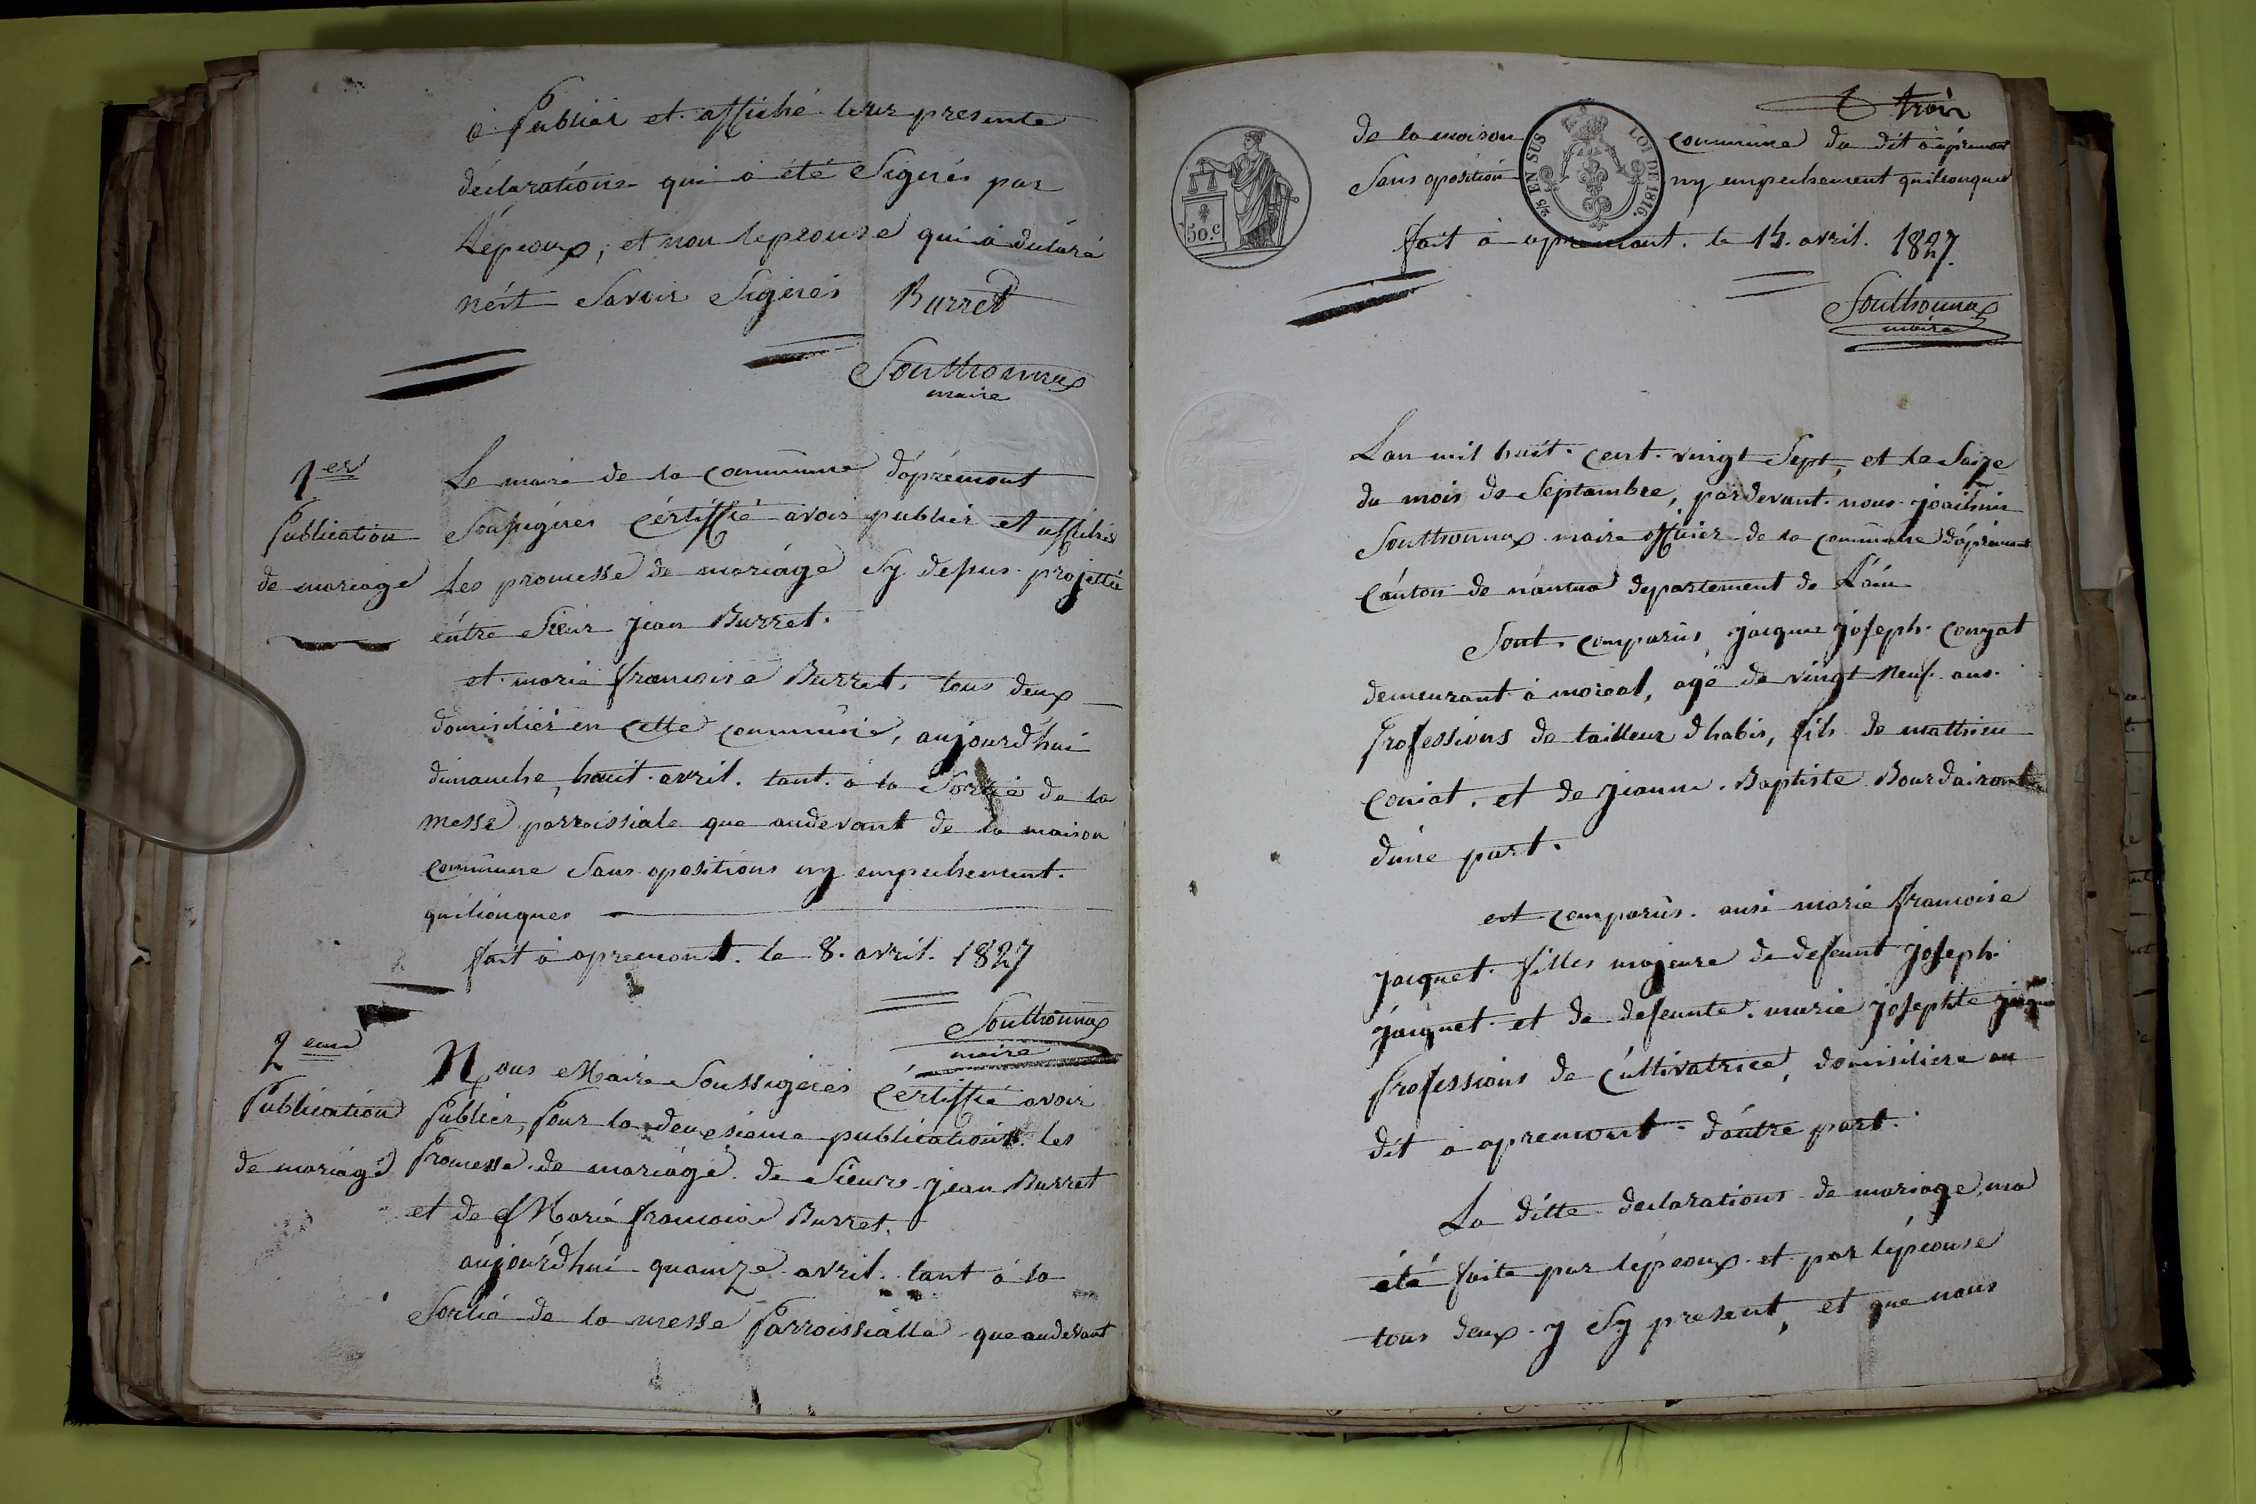 à Publiér et affiché leur presente
déclarations qui a été Signés par
Lépoux, et non lepouse qui a déclaré
nêst Savoir Signés Burret
Southonnax
maire
1er
Publication
de mariage
Le maire de la commune dáprémont
Sousignés Cértiffié avoir publiér et affichés
Les promesse de mariage Sy desus projettée
entre Sieur jean Burret.
et marie francoise Burret, tous deux
domisiliér en cette commune, aujourd'hui
dimanche, huit avril. tant à la Sortie de la
messe parroissiale que audevant de la maison
commune Sans opositions ny empechement.
quelconques
fait à apremont. le 8. avril. 1827
Southonnax
maire
2eme
Publication
de mariage
Nous Maire Soussignés Cértiffié avoir
Publiér, Pour la deuxsieme publications les
Promesse de mariage de Sieurs jean Burret
et de Marie francoise Burret.
aujourd'hui quainze avril. tant à la
Sortie de la messe Parroissialle que audevant
trois
de la maison commune du dit apremont
Sans oposition ny empechement quelconques
2/5 EN SUS LOI DE 1816.
50.c
fait à apremont. le 15. avril. 1827.
Southonnax
maire
Lan mil huit cent vingt Sept, et le Saize
du mois de Septambre, pardevant nous joachim
Southonnax maire officier de la commune dáprémont
Cánton de nántua departement de Láin
Sont comparûs, jacque joseph conyat
demeurant à moirat, agé de vingt neuf ans.
Professions de tailleur dhabis, fils de mathieu
Coniat, et de jeanne Baptiste Bourdairont
dúne part.
est comparûs ausi marie francoise
jacquet filles majeure de defeunt joseph
jacquet et de defeunte marie josephte
Professions de Cúltivatrice, domisiliere au
dit à apremont d'aútre part.
La ditte déclarations de mariage, ma
été faite par lépeoux et par lépeouse
tous deux y Sy present, et que nous